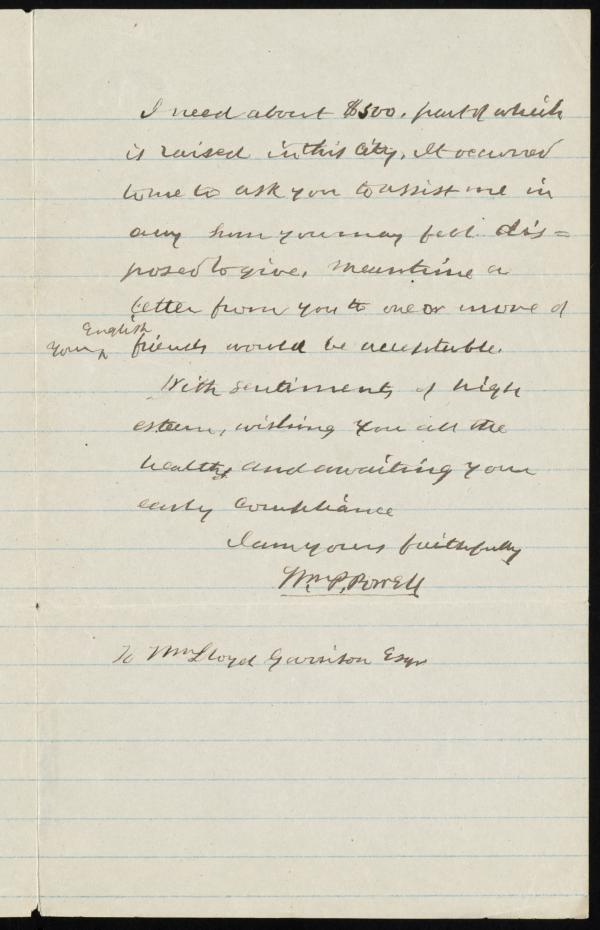 I need about $500. part of which
is raised in this city. It occurred
to me to ask you to assist me in
any sum you may feel dis=
posed to give. Meantime a
letter from you to one or more of
your English friends would be acceptable.
With sentiments of high
esteem, wishing you all the
health, and awaiting your
early compliance
I am yours faithfully
Wm. P. Powell
To Wm Lloyd Garrison Esqr